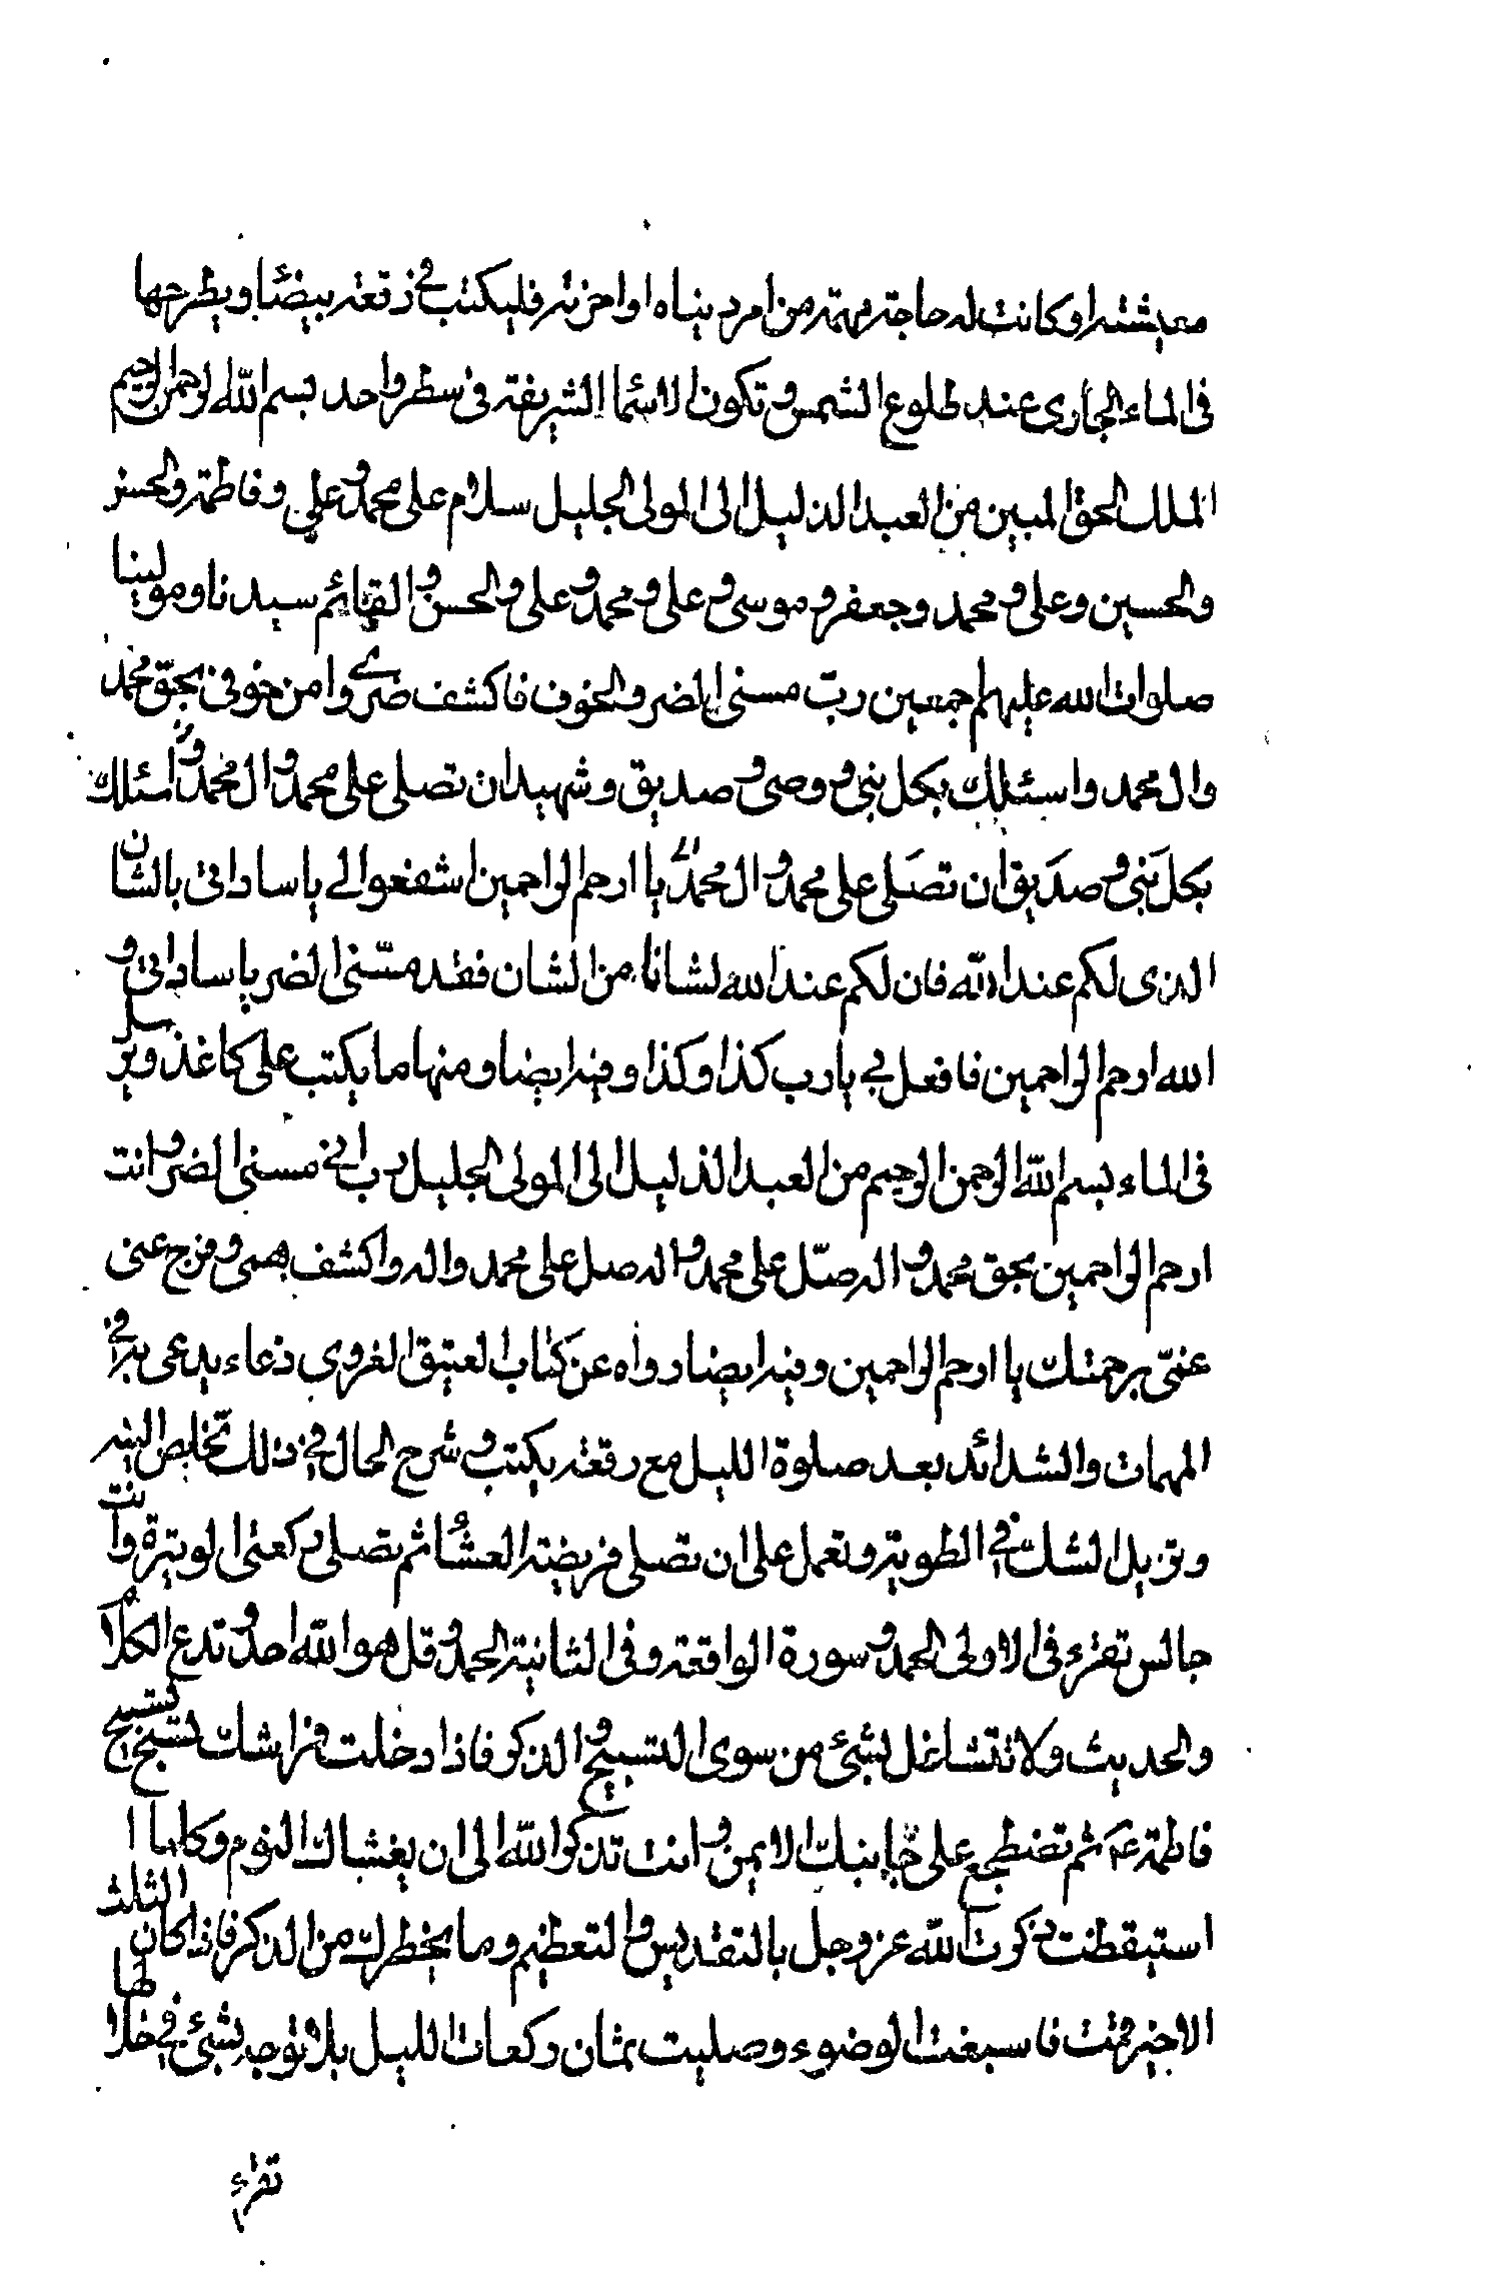 معيشته او كانت له حاجة مهمة من امر دنياه او اخرته فليكتب في رقعة بيضا و يطرحها
في الماء الجاري عند طلوع الشمس و تكون الاسما الشريفة في سطر واحد بسم الله الرحمن الرحيم
الملك الحق المبين من العبد الذليل الى المولى الجليل سلام على محمد و علي و فاطمة و الحسن
والحسين و علي و محمد و جعفر و موسى و علي و محمد و علي و الحسن و القائم سيدنا و مولينا
صلوات الله عليهم اجمعين رب مسني الضر و الخوف فاكشف ضري و امن خوفي بحق محمد
وال محمد و اسئلك بكل نبي و وصي و صديق و شهيد ان تصلي على محمد و ال محمد و اسئلك
بكل نبي و صديق ان تصلي على محمد و ال محمد يا ارحم الراحمين اشفعوا لي يا ساداتي بالشان
الذي لكم عند الله فان لكم عند الله لشانا من الشان فقد مسني الضر يا ساداتي و
الله ارحم الراحمين فافعل بي يا رب كذا و كذا و فيه ايضا و منها ما يكتب على كاغذ و يرسل
في الماء بسم الله الرحمن الرحيم من العبد الذليل الى المولى الجليل رب اني مسني الضر و انت
ارحم الراحمين بحق محمد و اله صل على محمد و اله صل على محمد و اله و اكشف همي و فرج عني
عني برحمتك يا ارحم الراحمين و فيه ايضا رواه عن كتاب العتيق الغروي دعاء يدعى به في
المهمات و الشدائد بعد صلوة الليل مع رقعة يكتب و شرح الحال في ذلك تخلص النية
و تزيل الشك في الطوية و تعمل على ان تصلي فريضة العشا ثم تصلي ركعتي الوتيرة و انت
جالس تقرء في الاولى الحمد و سورة الواقعة و في الثانية الحمد و قل هو الله احد و تدع الكلام
والحديث و لا تتشاغل بشئ من سوى التسبيح و الذكر فاذا دخلت فراشك تسبح تسبيح
فاطمة ع ثم تضطجع على جانبك الايمن و انت تذكر الله الى ان يغشاك النوم و كلما ا
استيقظت ذكرت الله عز و جل بالتقديس و التعظيم و ما يخطر لك من الذكر فاذا كان الثلث
الاخير قمت فاسبغت الوضوء و صليت ثمان ركعات الليل بلا توجه بشئ في خلالها
تقراء